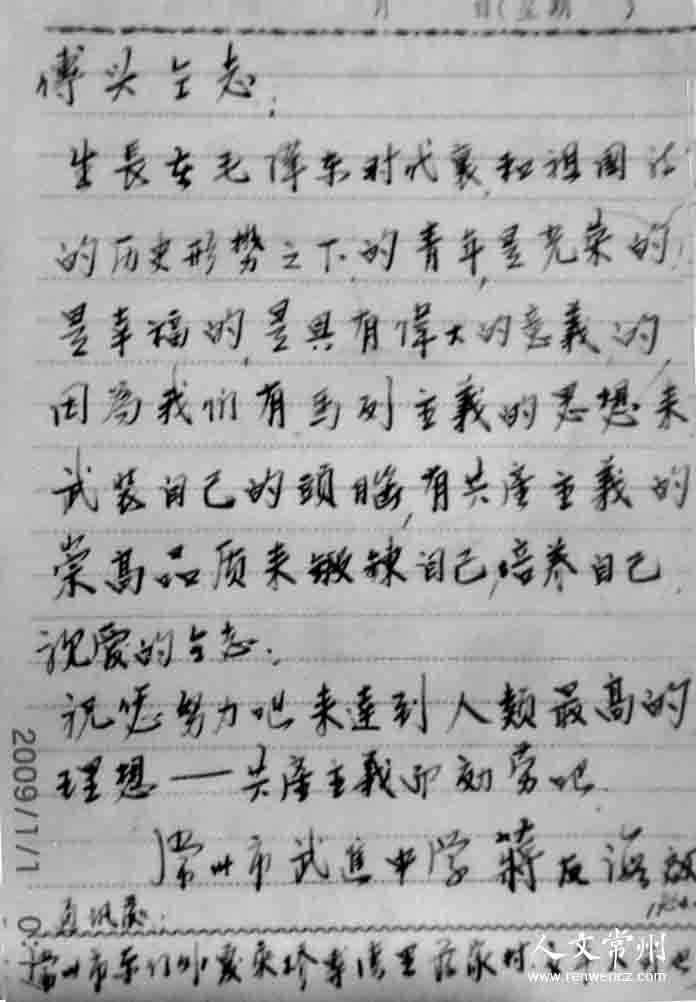 月 日(星期 )
傅头仝志:
生長在毛泽东时代裏,和祖国
的历史形势之下,的青年,是光荣的,
是幸福的,是具有偉大的意義的,
因為我们有马列主義的思想来
武装自己的頭腦,有共產主義的
崇高品质来锻鍊自己,培养自己,
亲爱的仝志:
祝您努力吧来達到人類最高的
理想——共產主義而効劳吧.
常州市武進中学 蔣
常州市东门外
2009/1/1 0:
人文常州
www.renwencz.com